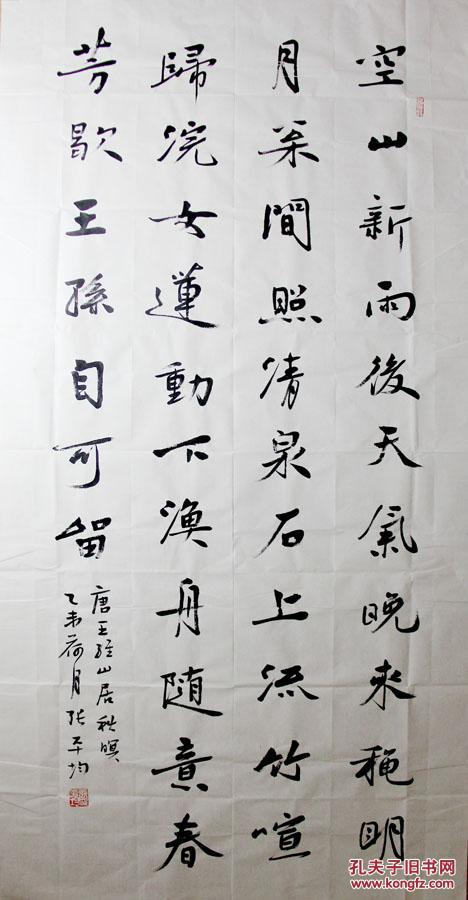 空山新雨後天氣晚來穐明
月枀間照清泉石上流竹喧
歸浣女蓮動下漁舟随意春
芳歇王孫自可留
唐王維山居秋暝
乙未荷月张平均
孔夫子旧书网
www.kongfz.com